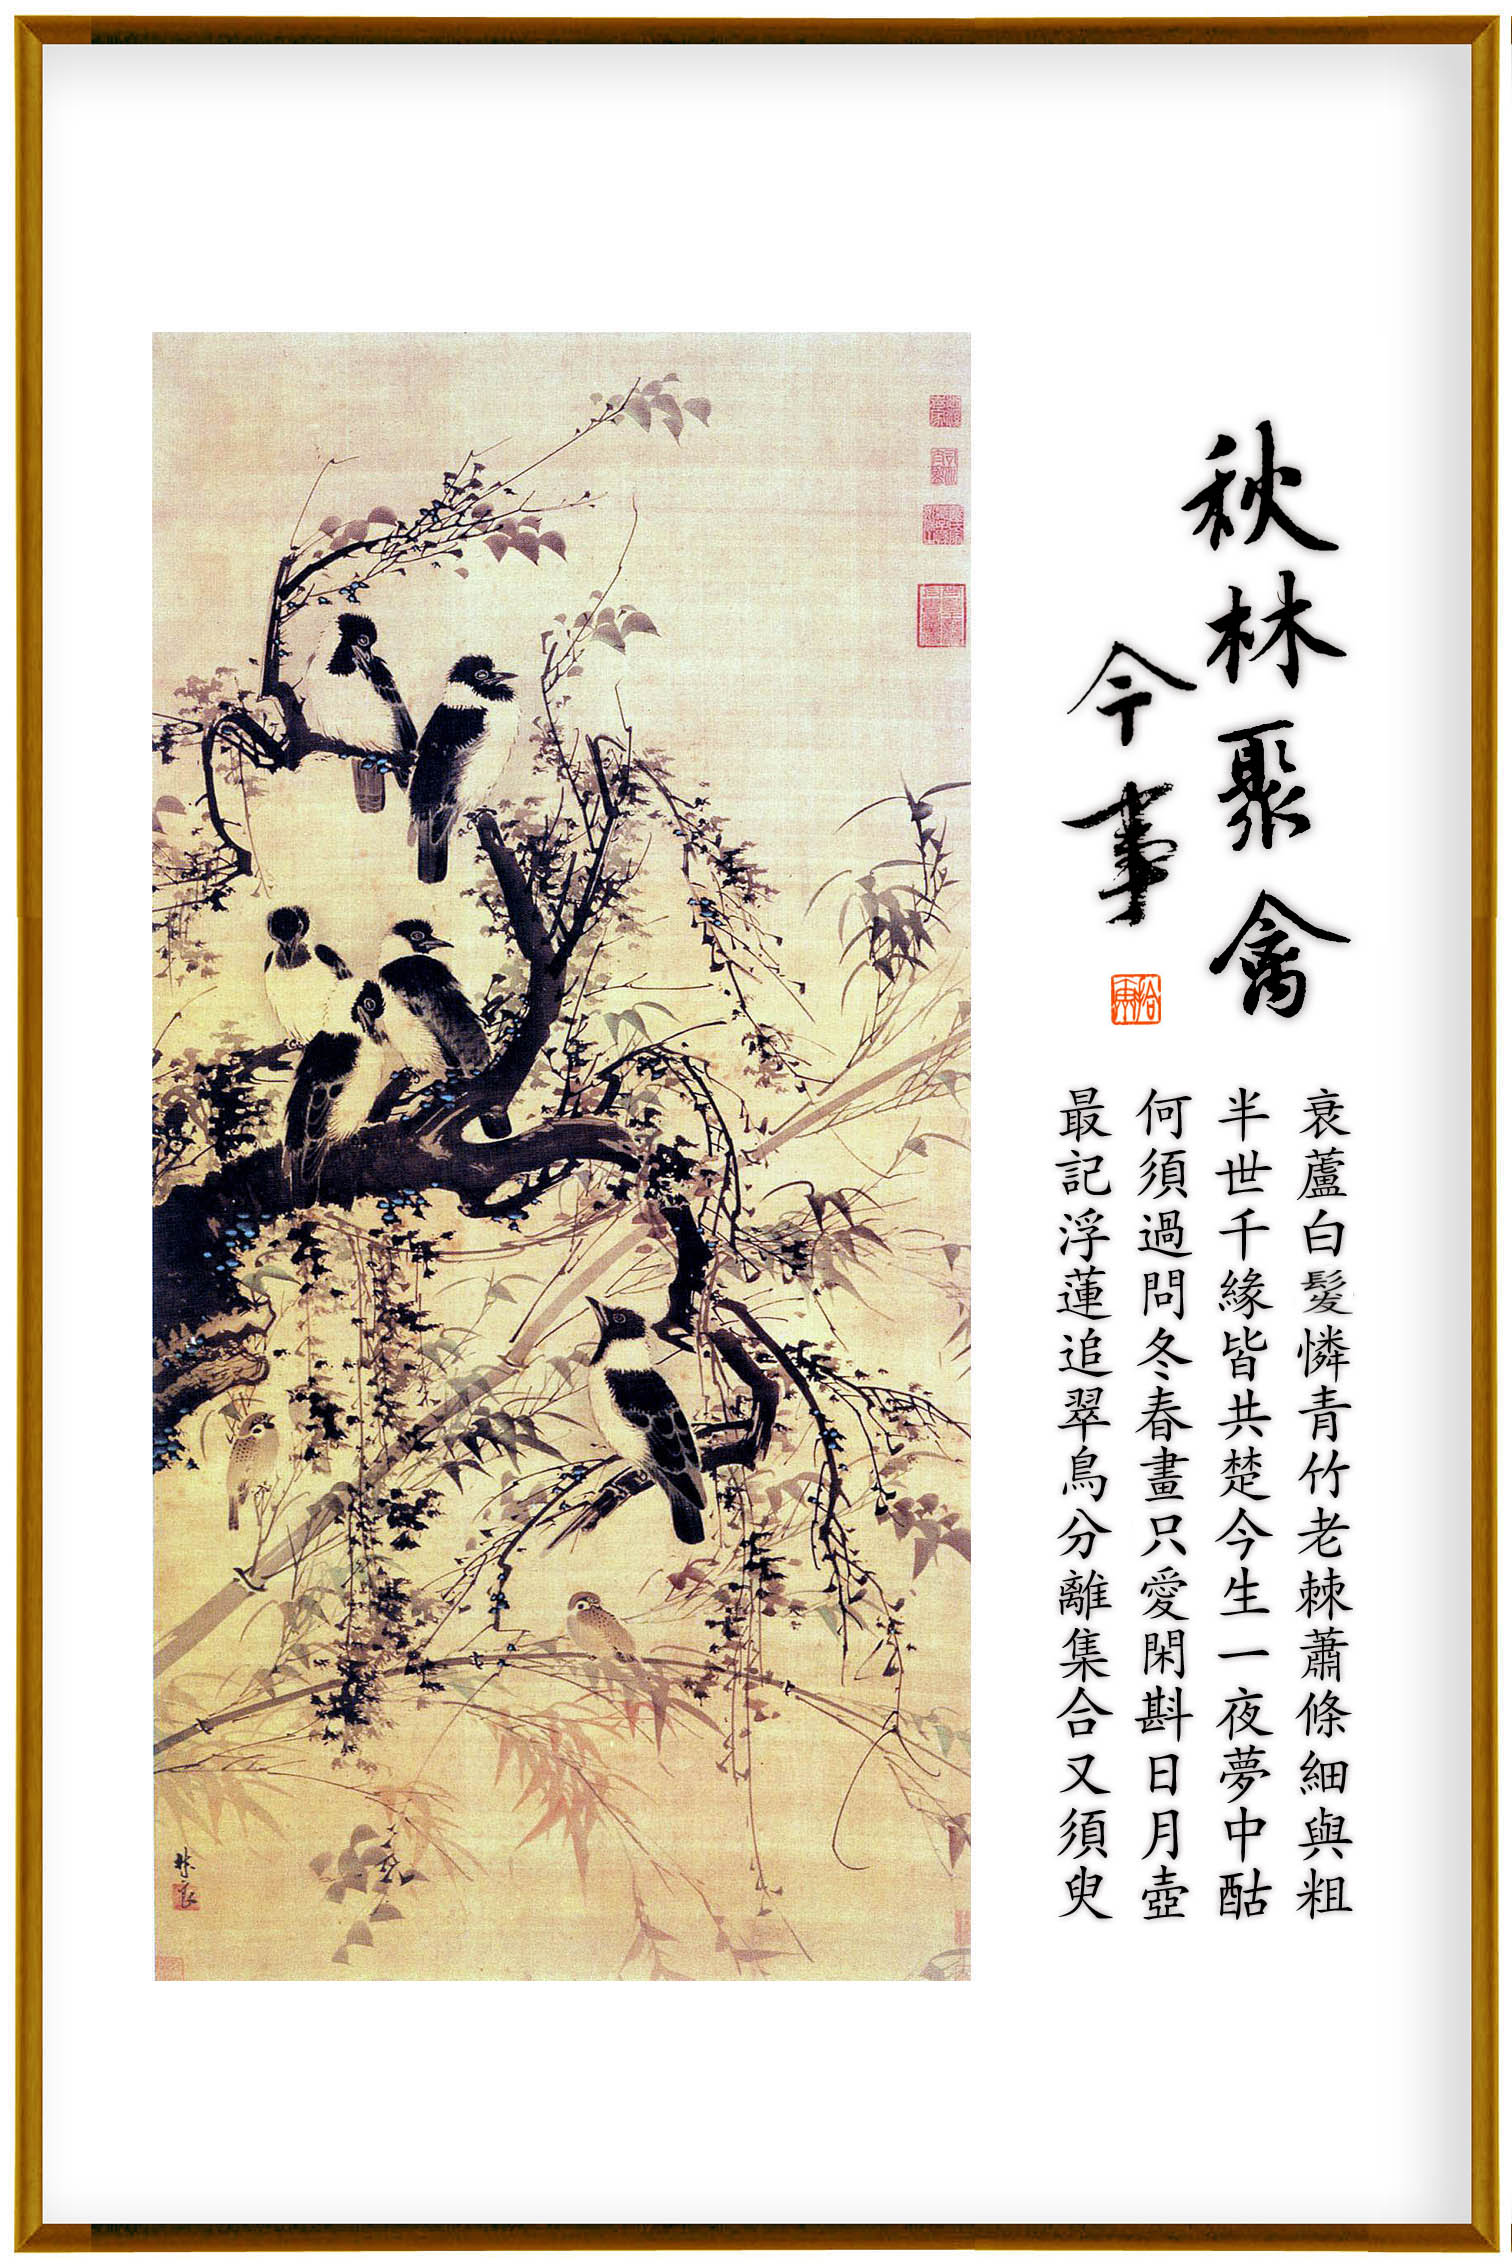 秋林聚禽
今事
衰蘆白髮憐青竹老棘蕭條細與粗
半世千緣皆共楚今生一夜夢中酤
何須過問冬春畫只愛閑斟日月壺
最記浮蓮追翠鳥分離集合又須臾
林良